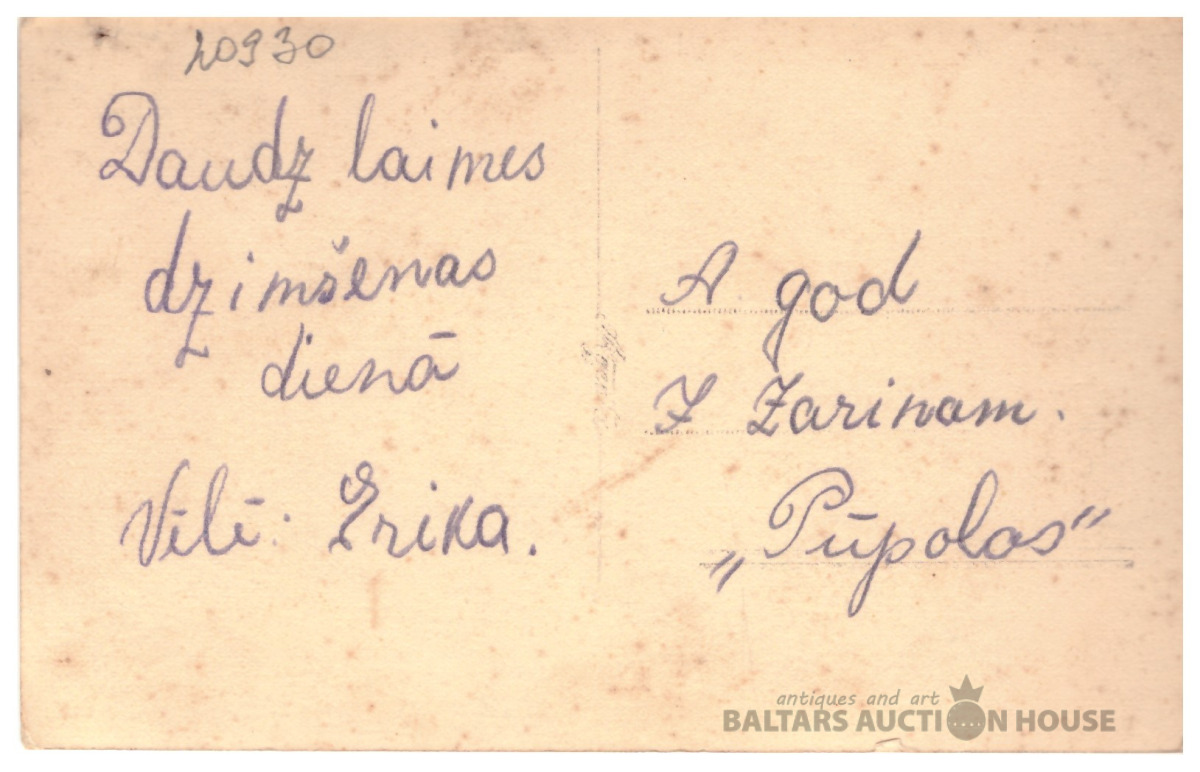 20930
Daudz laimes
dzimšenas
dienā
Vēlē: Erika.
A. god
Z Zarinam.
„Pūpolos"
antiques and art
BALTARS AUCTION HOUSE